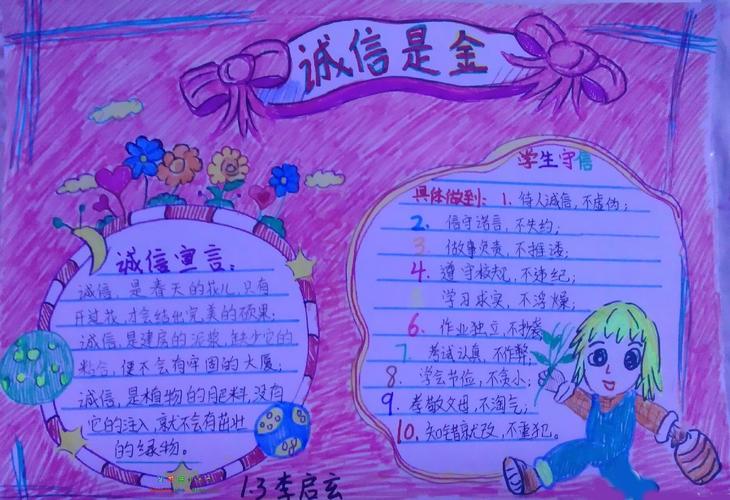 诚信是金
诚信宣言:
诚信,是春天的花儿,只有
开过花,才会结出完美的硕果;
诚信,是建房的泥浆,缺少它的
粘合,便不会有牢固的大厦;
诚信,是植物的肥料,没有
它的注入,就不会有茁壮
的绿物。
学生守信
具体做到: 1. 待人诚信,不虚伪;
2. 信守诺言,不失约;
3. 做事负责,不推诿;
4. 遵守校规,不违纪;
5 学习求实,不浮燥;
6. 作业独立,不抄袭;
7 考试认真,不作弊;
8. 学会节俭,不贪小;
9. 孝敬父母,不淘气;
10. 知错就改,不重犯。
1.3 李启玄